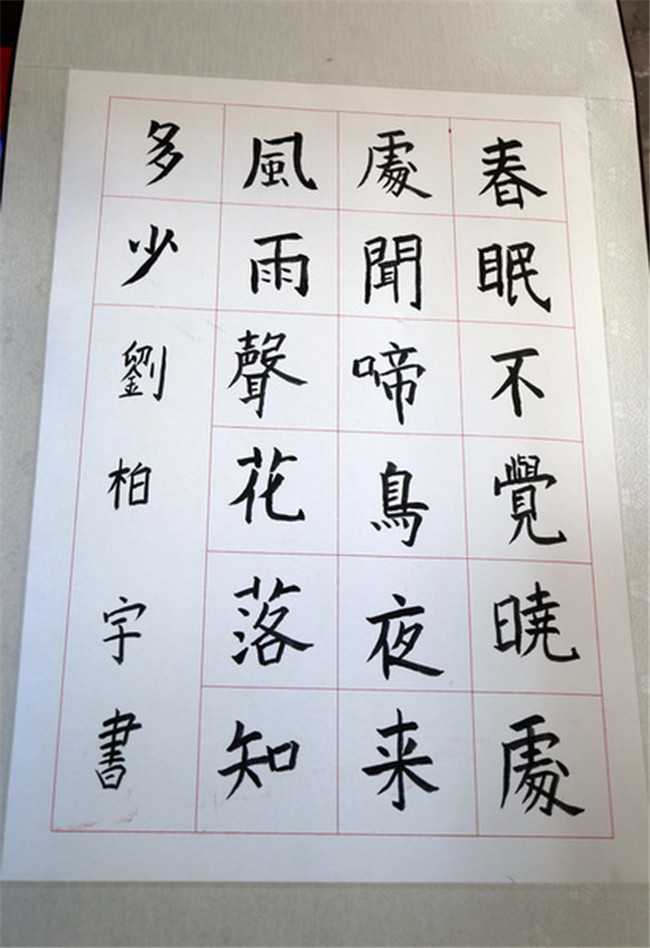 春眠不覺曉處
處聞啼鳥夜来
風雨聲花落知
多少劉柏宇書